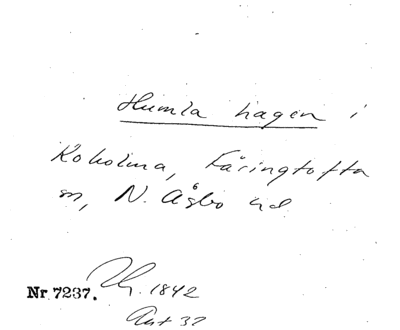 Humla hagen i
Koholma, Färingtofta
sn, N. Åsbo hd
Nr 7237.
1842
Ant 32